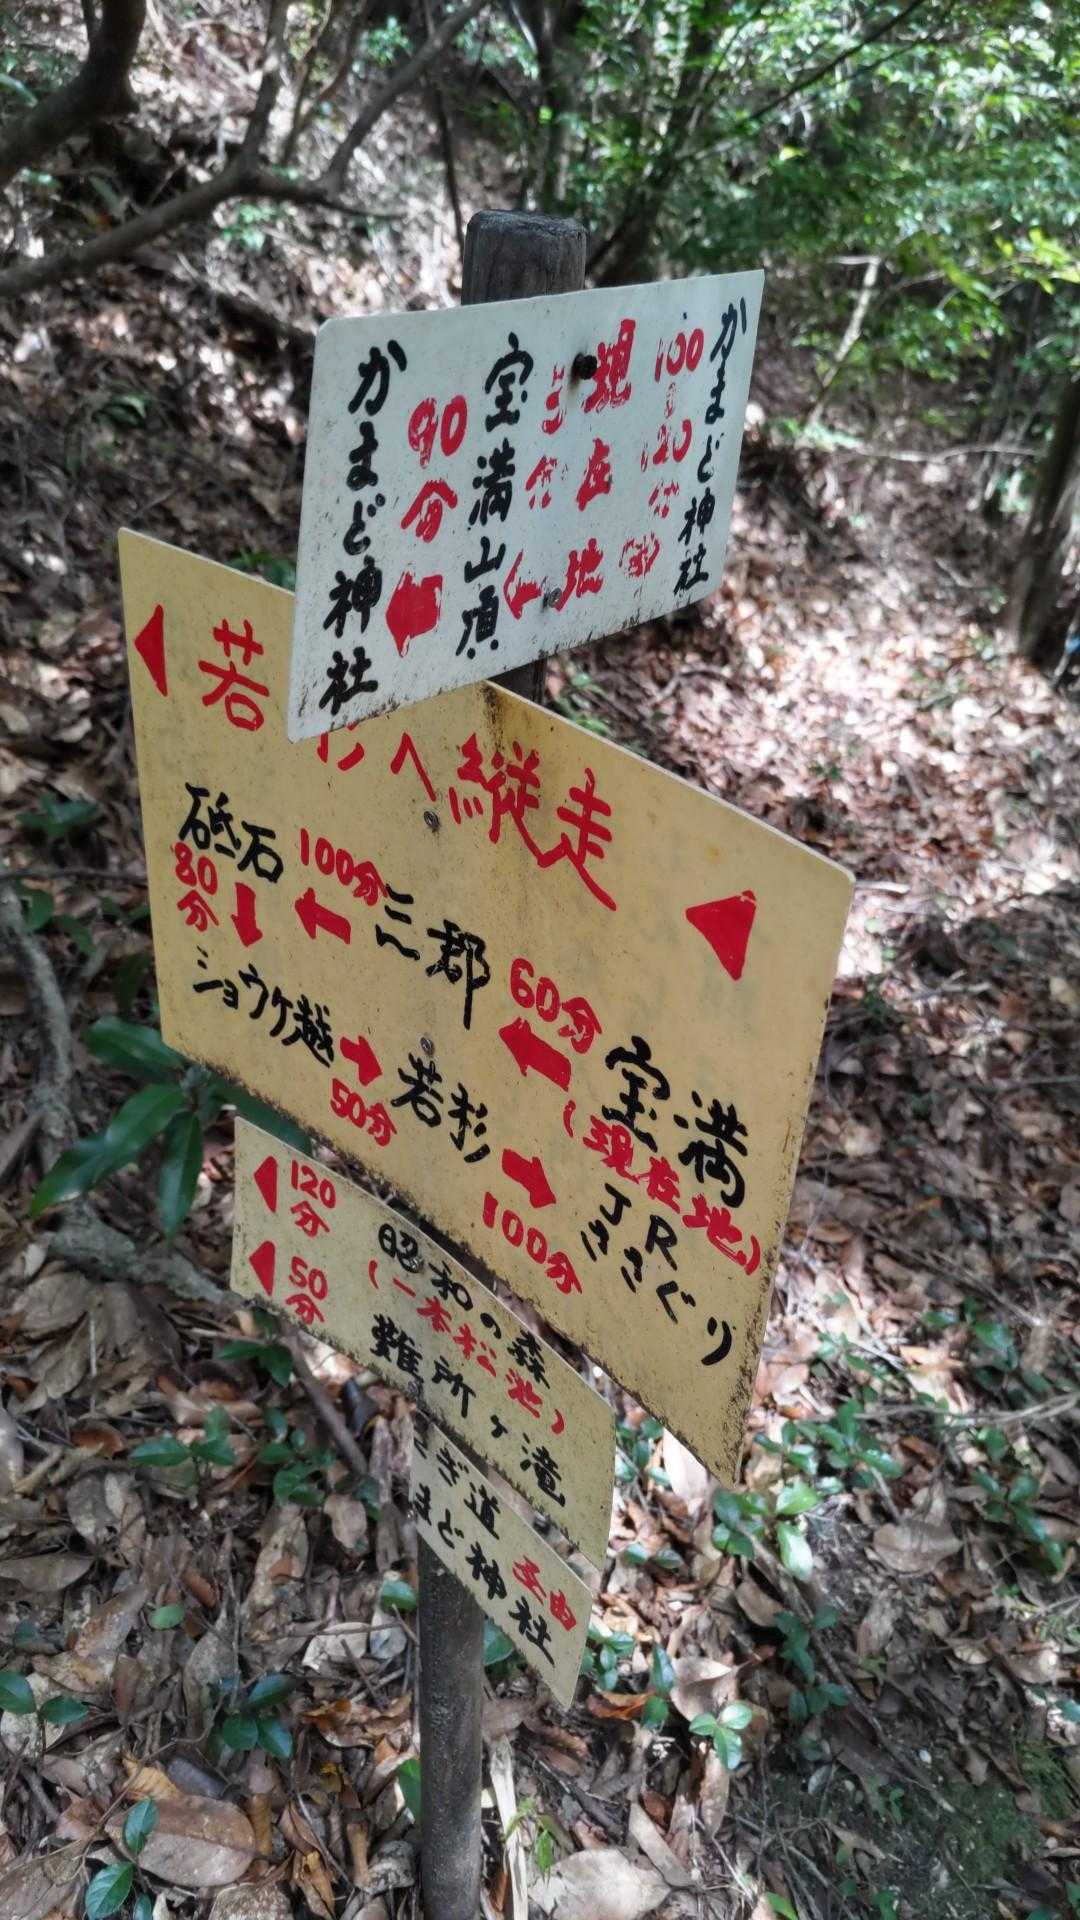 かまど神社
100
120
現在地
宝満山頂
90分
かまど神社
若杉へ縦走
砥石
100分
三郡
60分
宝満
(現在地)
80分
ショウケ越
50分
若杉
100分
JR
ささぐり
120分
昭和の森
(一本松池)
50分
難所ヶ滝
ぎ道
まど神社